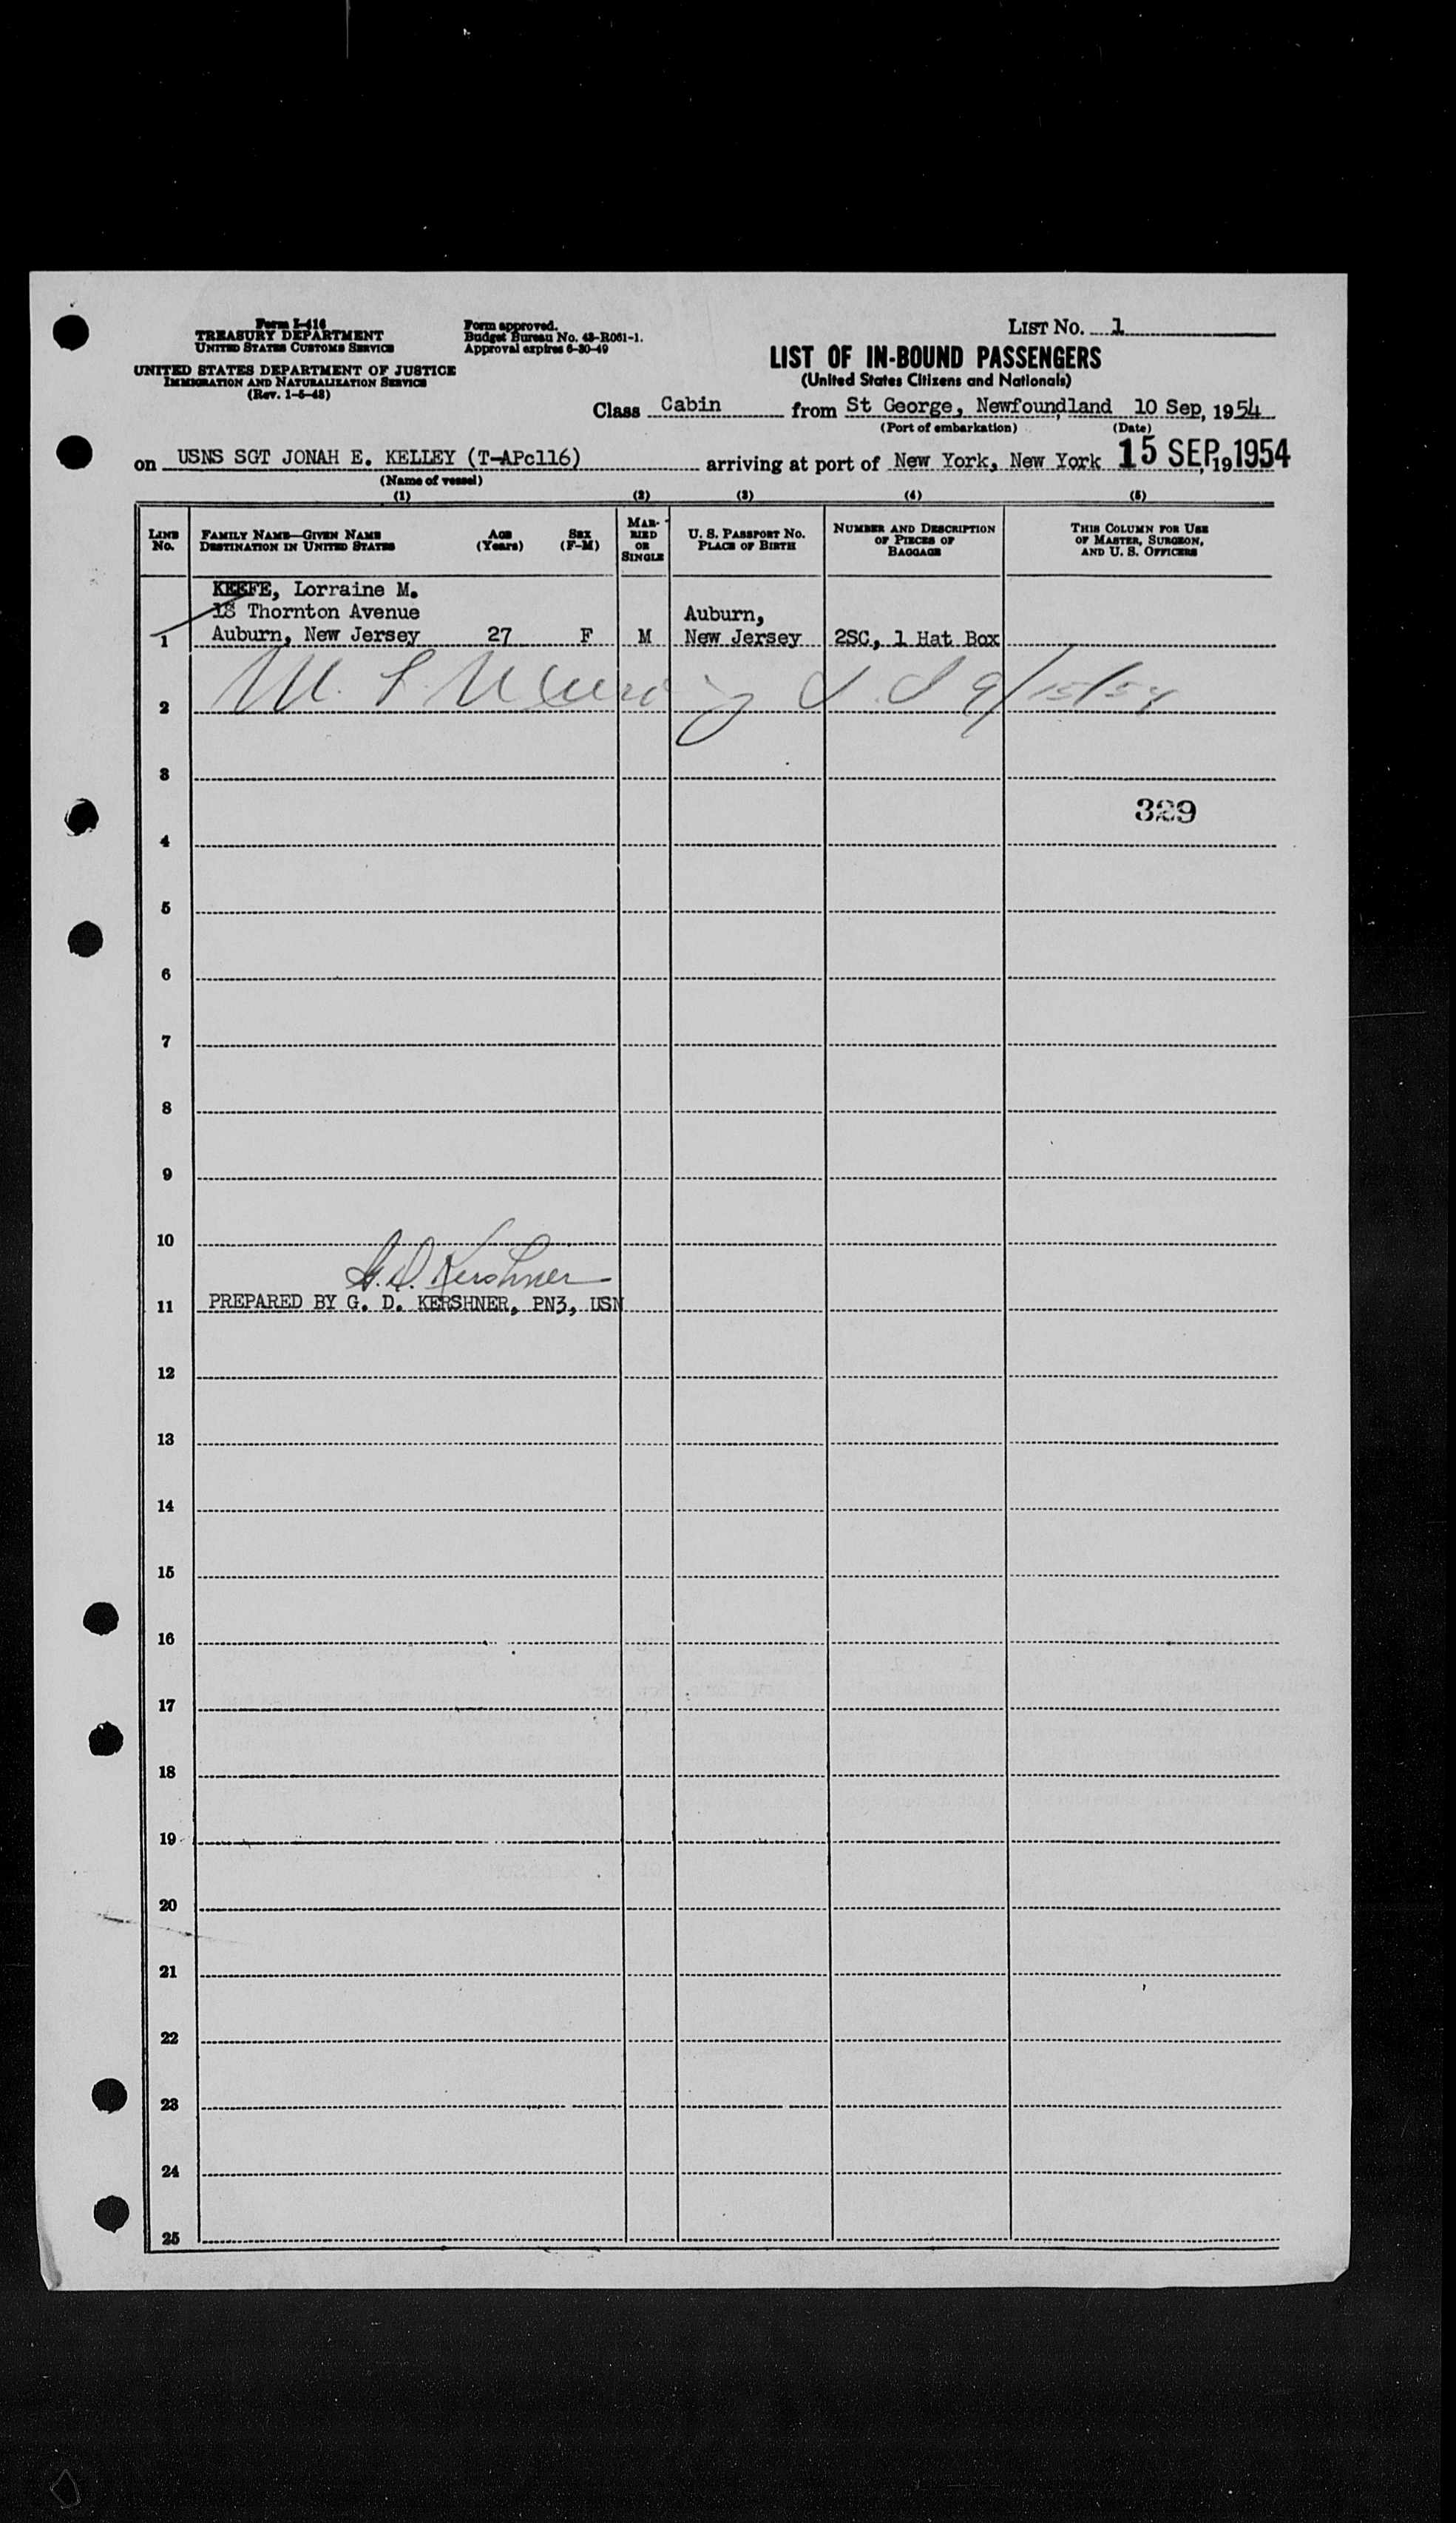 Form I-416
TREASURY DEPARTMENT
UNITED STATES CUSTOMS SERVICE
UNITED STATES DEPARTMENT OF JUSTICE
IMMIGRATION AND NATURALIZATION SERVICE
(Rev. 1-5-48)
Form approved.
Budget Bureau No. 43-R061-1.
Approval expires 6-30-49
LIST NO. 1
LIST OF IN-BOUND PASSENGERS
(United States Citizens and Nationals)
Class Cabin from St George, Newfoundland 10 Sep, 1954
(Port of embarkation) (Date)
on USNS SGT JONAH E. KELLEY (T-APc116) arriving at port of New York, New York 15 SEP 1954, 19
(Name of vessel)
(1) (2) (3) (4) (5)
LINE NO.
FAMILY NAME—GIVEN NAME
DESTINATION IN UNITED STATES
AGE
(Years)
SEX
(F-M)
MAR-
RIED
OR
SINGLE
U. S. PASSPORT NO.
PLACE OF BIRTH
NUMBER AND DESCRIPTION
OF PIECES OF
BAGGAGE
THIS COLUMN FOR USE
OF MASTER, SURGEON,
AND U. S. OFFICERS
KEEFE, Lorraine M.
18 Thornton Avenue Auburn,
1 Auburn, New Jersey 27 F M New Jersey 2SC, 1 Hat Box
2 9/15/54
3
329
4
5
6
7
8
9
10
G. D. Kershner
11 PREPARED BY G. D. KERSHNER, PN3, USN
12
13
14
15
16
17
18
19
20
21
22
23
24
25